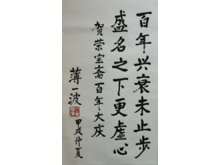 百年兴衰未止步
盛名之下更虚心
贺荣宝斋百年大庆
薄一波
甲戌仲夏